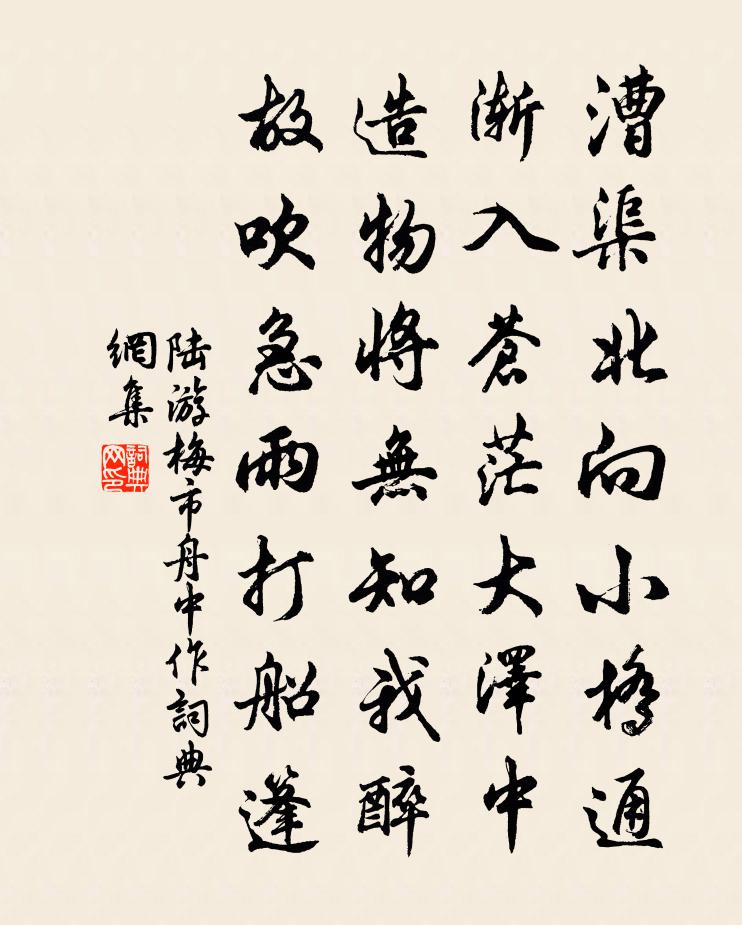 漕渠北向小橋通
漸入蒼茫大澤中
造物將無知我醉
故吹急雨打船篷
陸游梅市舟中作詞典
網集
詞典
网印